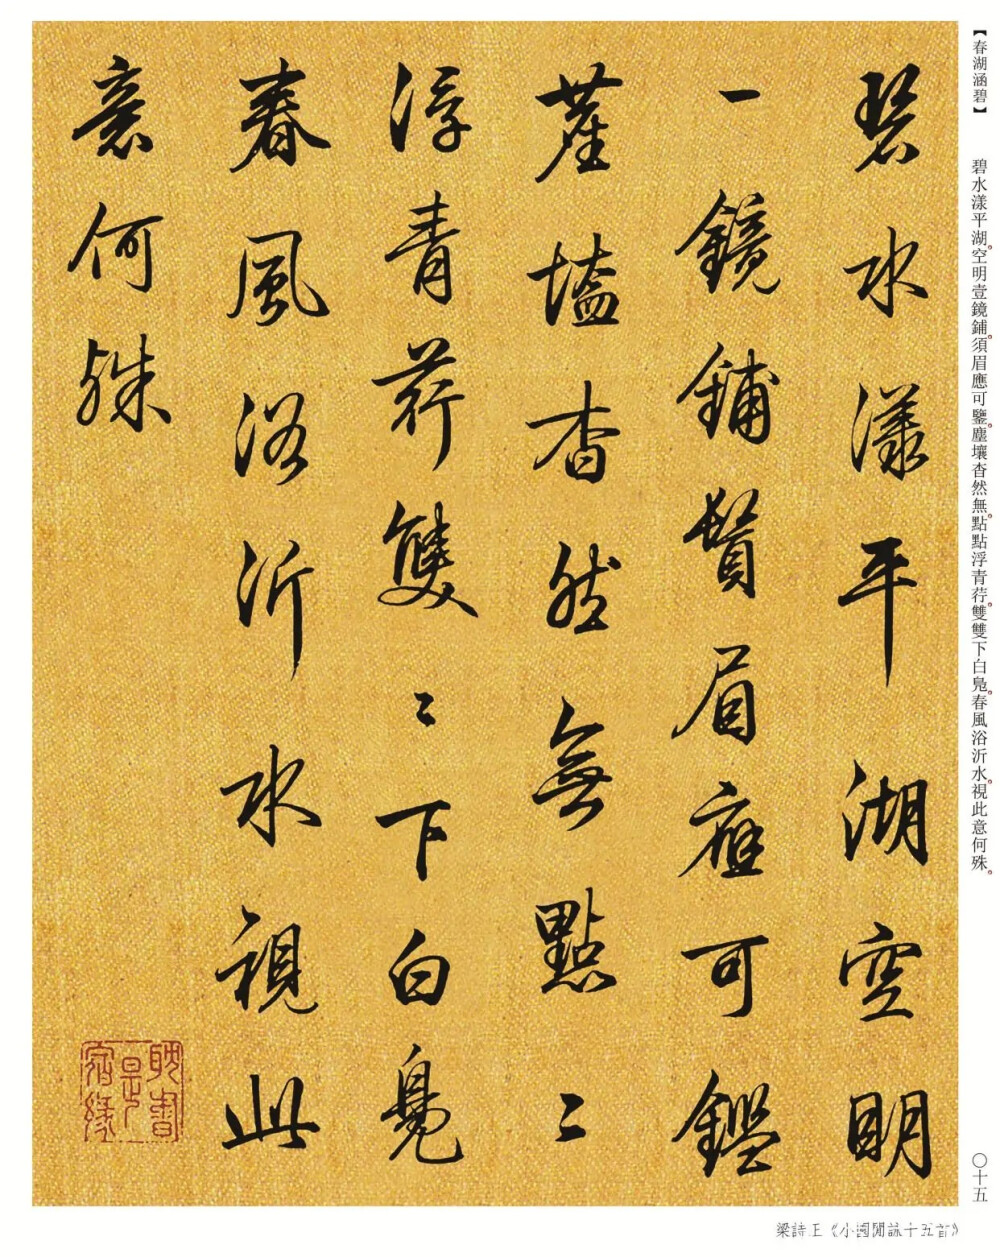 【春湖涵碧】 碧水漾平湖。空明壹鏡鋪。須眉應可鑒。塵壤杳然無。點點浮青荇。雙雙下白鳧。春風浴沂水。視此意何殊。
碧水漾平湖空明
一鏡鋪鬚眉應可鑑
塵壒杳然無點〻
浮青荇雙〻下白鳧
春風浴沂水視此
意何殊
耽書是宿緣
〇十五
梁詩正《小園閒詠十五首》